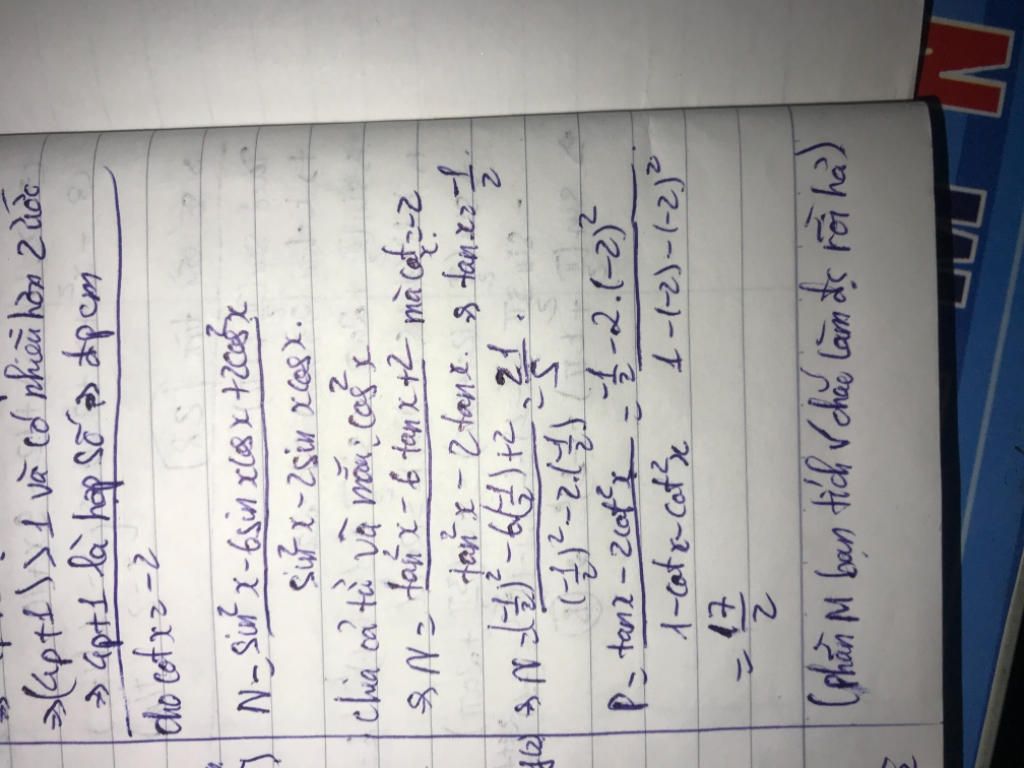 ⇒ (4p+1) > 1 và có nhiều hơn 2 ước
⇒ 4p+1 là hợp số ⇒ đpcm
cho cot x = -2
N = \frac{sin² x - 6 sin x cos x + 2cos² x}{sin² x - 2 sin x cos x}.
chia cả tử và mẫu cos² x
⇒ N = \frac{tan² x - 6 tan x + 2}{tan² x - 2 tan x}. mà cot x = -2 ⇒ tan x = -\frac{1}{2}.
⇒ N = \frac{(-\frac{1}{2})² - 6(-\frac{1}{2}) + 2}{(-\frac{1}{2})² - 2.(-\frac{1}{2})} = \frac{21}{5}.
P = \frac{tan x - 2cot² x}{1 - cot x - cot² x} = \frac{-\frac{1}{2} - 2.(-2)²}{1 - (-2) - (-2)²}.
= \frac{17}{2}
(phần M bạn tích √ chắc làm đc rồi hả)
N